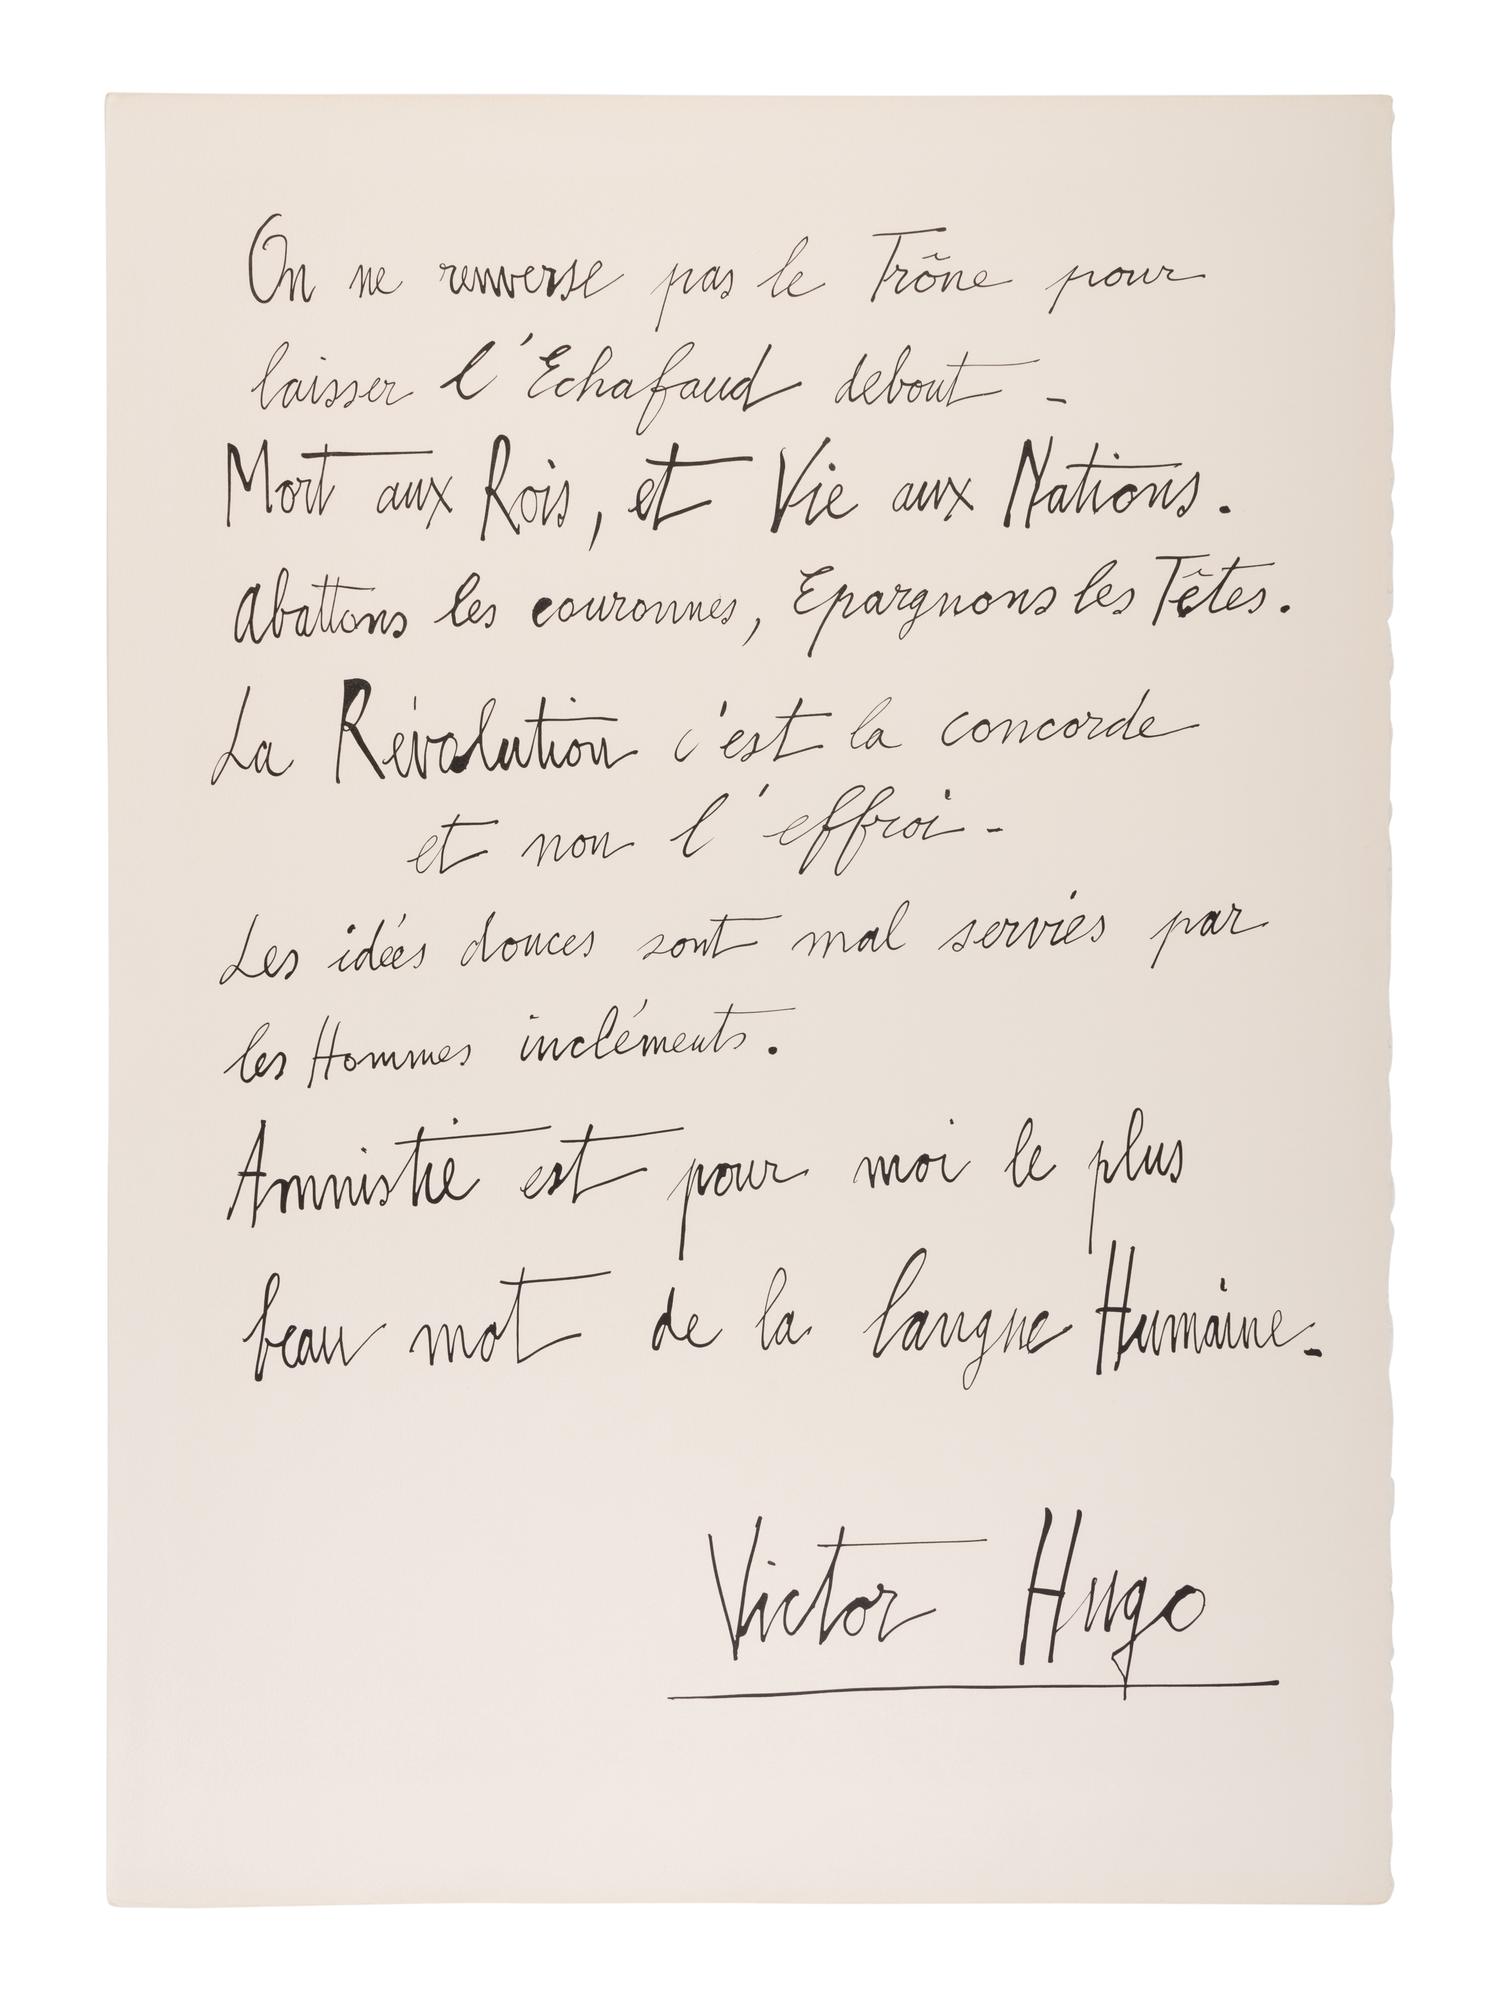 On ne renverse pas le Trône pour
laisser l'Echafaud debout -
Mort aux Rois, et Vie aux Nations.
Abattons les couronnes, Epargnons les Têtes.
La Révolution c'est la concorde
et non l'effroi -
Les idées douces sont mal servies par
les Hommes incléments.
Amnistie est pour moi le plus
beau mot de la langue Humaine -
Victor Hugo